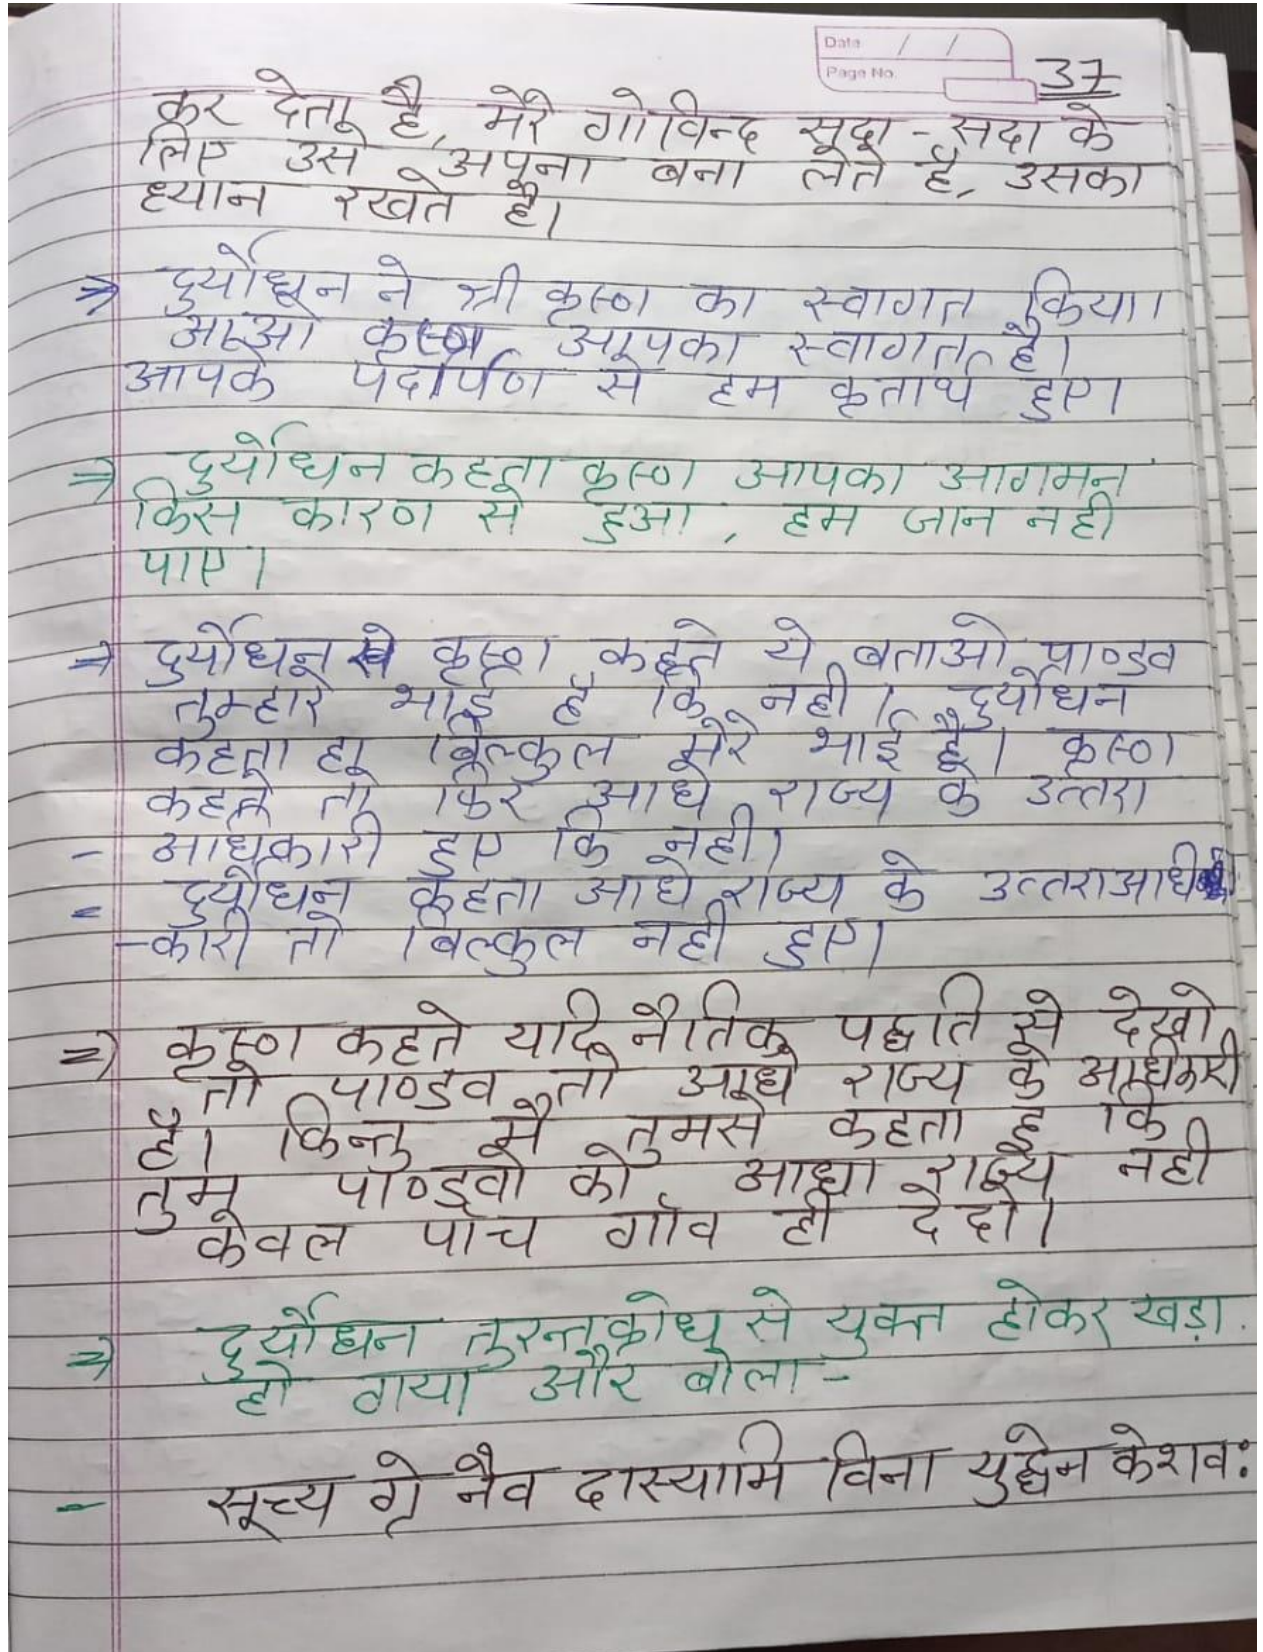 Date / /
Page No.
37
कर देता है, मेरे गोविन्द सदा - सदा के
लिए उसे अपना बना लेते है, उसका
ध्यान रखते है।
⇒ दुर्योधन ने श्री कृष्ण का स्वागत किया।
आओ कृष्ण आपका स्वागत है।
आपके पर्दापण से हम कृतार्थ हुए।
⇒ दुर्योधन कहता कृष्ण आपका आगमन
किस कारण से हुआ, हम जान नही
पाए।
⇒ दुर्योधन से कृष्ण कहते ये बताओ पाण्डव
तुम्हारे भाई है कि नही। दुर्योधन
कहता हा बिल्कुल मेरे भाई है। कृष्ण
कहते तो फिर आधे राज्य के उत्तरा
- अधिकारी हुए कि नही।
= दुर्योधन कहता आधे राज्य के उत्तराअधि
-कारी तो बिल्कुल नही हुए।
⇒ कृष्ण कहते यदि नैतिक पद्धति से देखो
तो पाण्डव तो आधे राज्य के अधिकारी
है। किन्तु मै तुमसे कहता हू कि
तुम पाण्डवो को आधा राज्य नही
केवल पाँच गाँव ही दे दो।
⇒ दुर्योधन तुरन्त क्रोध से युक्त होकर खड़ा
हो गया और बोला -
- सूच्य ग्रे नैव दास्यामि विना युद्धेन केशव: